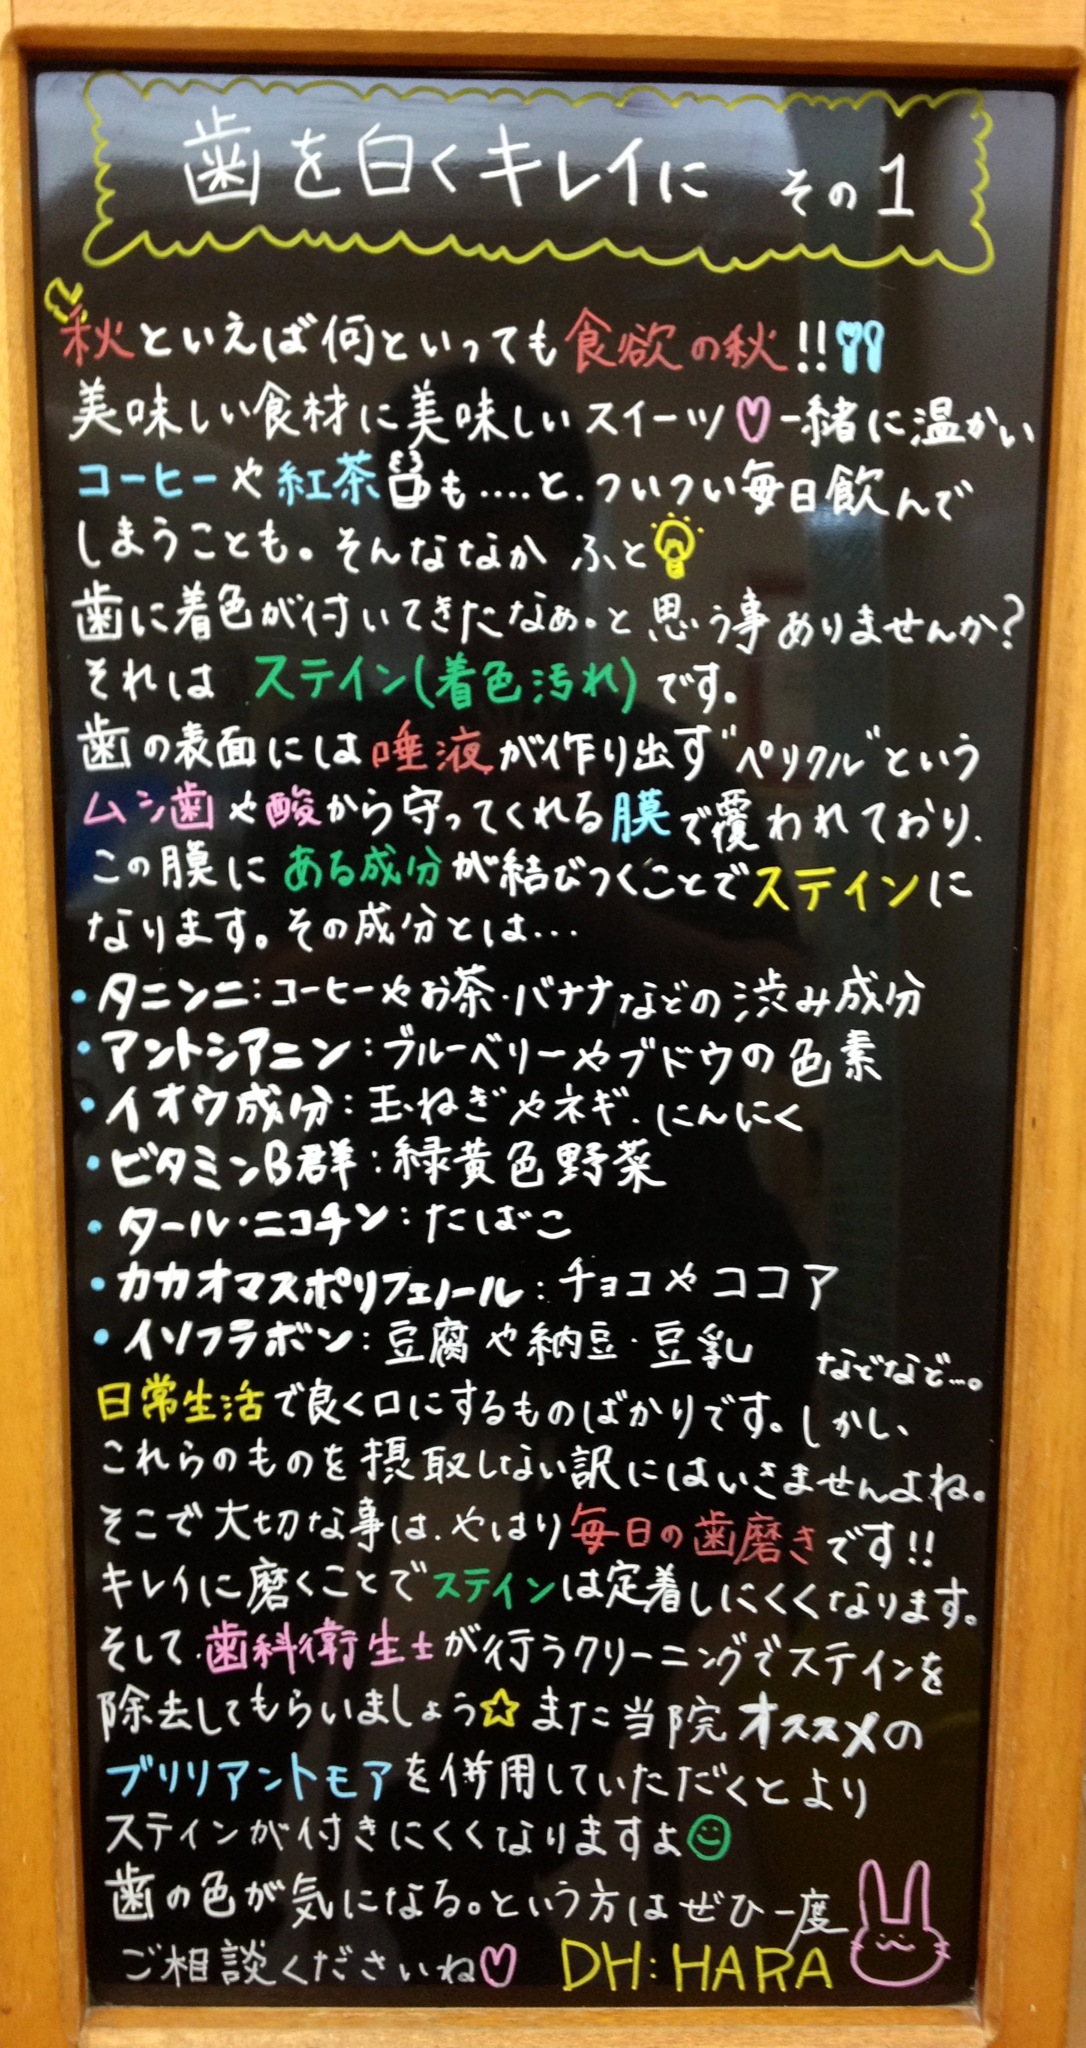 歯を白くキレイに その1
秋といえば何といっても食欲の秋!!
美味しい食材に美味しいスイーツ♡一緒に温かい
コーヒーや紅茶も‥‥と、ついつい毎日飲んで
しまうことも。そんななか ふと
歯に着色が付いてきたなぁ。と思う事ありませんか?
それは ステイン(着色汚れ)です。
歯の表面には唾液が作り出す"ペリクル"という
ムシ歯や酸から守ってくれる膜で覆われており、
この膜にある成分が結びつくことでステインに
なります。その成分とは…
・タニンニ:コーヒーやお茶・バナナなどの渋み成分
・アントシアニン:ブルーベリーやブドウの色素
・イオウ成分:玉ねぎやネギ、にんにく
・ビタミンB群:緑黄色野菜
・タール・ニコチン:たばこ
・カカオマスポリフェノール:チョコやココア
・イソフラボン:豆腐や納豆・豆乳 などなど…。
日常生活で良く口にするものばかりです。しかし、
これらのものを摂取しない訳にはいきませんよね。
そこで大切な事は、やはり毎日の歯磨きです!!
キレイに磨くことでステインは定着しにくくなります。
そして、歯科衛生士が行うクリーニングでステインを
除去してもらいましょう☆また当院オススメの
ブリリアントモアを併用していただくとより
ステインが付きにくくなりますよ
歯の色が気になる。という方はぜひ一度
ご相談くださいね♡ DH:HARA